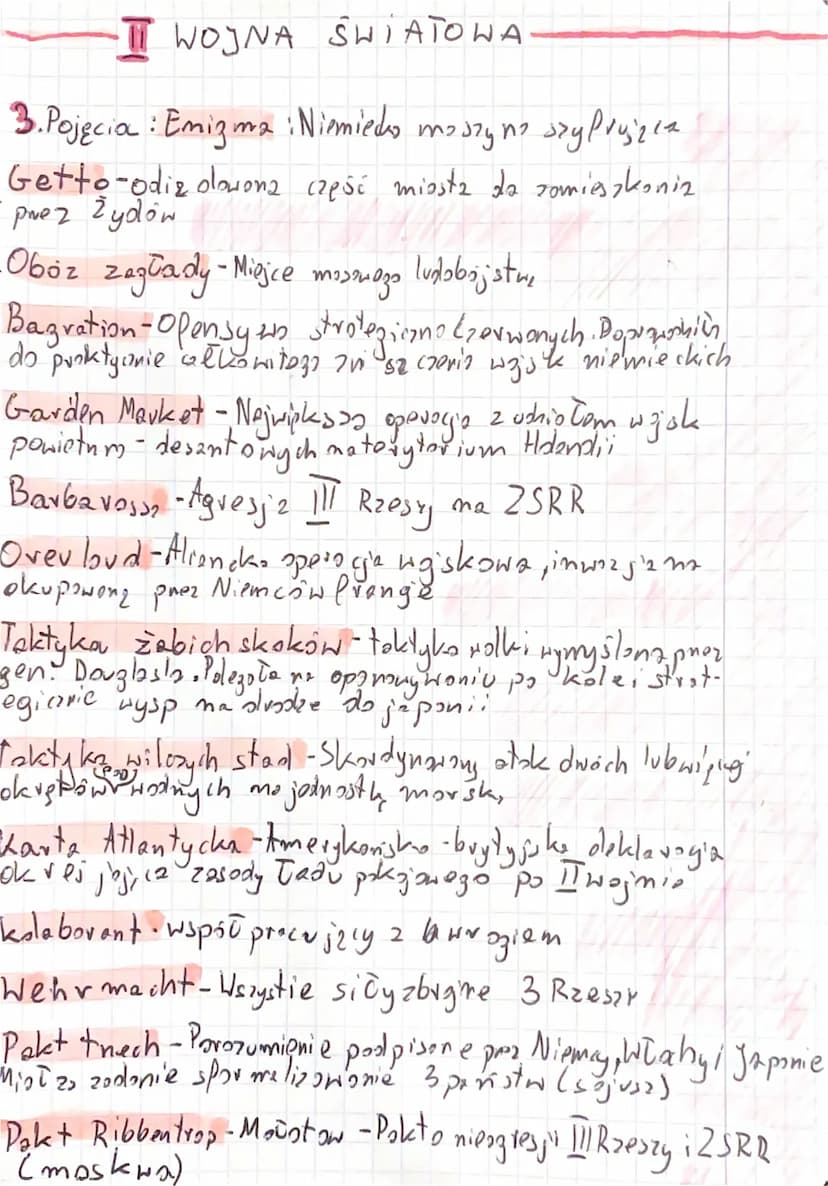 II WOJNA ŚWIATOWA
3. Pojęcia : Enigma : Niemiecka maszyna szyfrująca
Getto - odizolowona część miasta do zamieszkania
przez Żydów
Obóz zagłady - Miejce masowego ludobójstwa
Bagration - Ofensywa strategiczna Czerwonych. Doprowadziła
do praktycznie całkowitego zniszczenia wojsk niemieckich
Garden Market - Największa operacja z udziałem wojsk
powietrzno - desantowych na terytorium Holandii
Barbarossa - Agresja III Rzeszy na ZSRR
Overloud - Aliancka operacja wojskowa, inwazja na
okupowaną przez Niemców Francję
Taktyka żabich skoków - taktyka walki wymyślona przez
gen. Douglasa. Polegała na opanowywaniu po kolei strat-
egicznie wysp na drodze do japonii
Taktyka wilczych stad - Skordynowany atak dwóch lub więcej
okrętów podwodnych na jednostkę morską
Karta Atlantycka - Amerykońsko - brytyjska deklaracja
okreśjająca zasady ładu pokojowego po II wojnie
kolaborant - współpracujący z wrogiem
Wehrmacht - Wszystkie siły zbrojne 3 Rzeszy
Pakt trzech - Porozumienie podpisane przez Niemcy, Włahy i Japonie
Miał za zadanie sformalizowanie 3 państw (sojusz)
Pakt Ribbentrop - Mołotow - Pakt o nieagresji III Rzeszy i ZSRR
(moskwa)